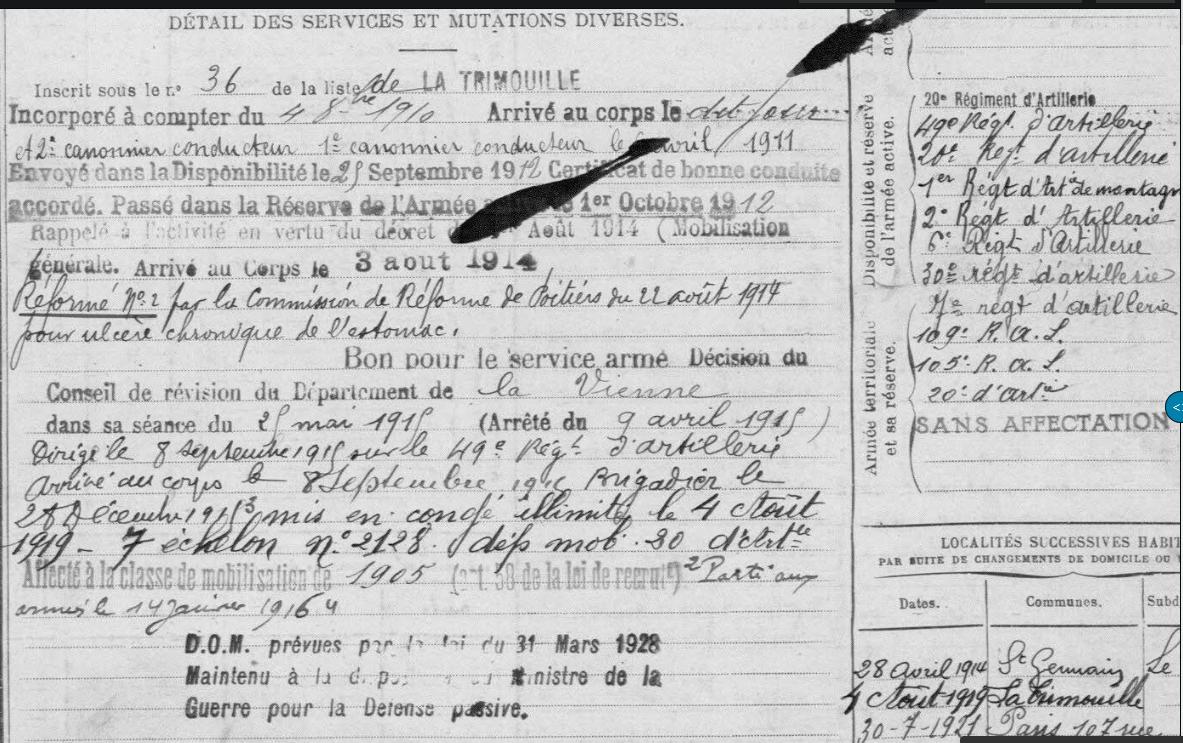 DÉTAIL DES SERVICES ET MUTATIONS DIVERSES.
Inscrit sous le n.° 36 de la liste de LA TRIMOUILLE
Incorporé à compter du 4 8bre 1910 Arrivé au corps le dit jour
et 2e canonnier conducteur 1e canonnier conducteur le avril 1911
Envoyé dans la Disponibilité le 25 Septembre 1912 Certificat de bonne conduite
accordé. Passé dans la Réserve de l'Armée 1er Octobre 1912
Rappelé à l'activité en vertu du décret Août 1914 (Mobilisation
générale. Arrivé au Corps le 3 aout 1914
Réformé No 2 par la Commission de Réforme de Poitiers du 22 août 1914
pour ulcère chronique de l'estomac.
Bon pour le service armé Décision du
Conseil de révision du Département de la Vienne
dans sa séance du 25 mai 1915 (Arrêté du 9 avril 1915)
Dirigé le 8 septembre 1915 sur le 49e Régt d'artillerie
arrivé au corps le 8 Septembre Brigadier le
Décembre 1915 mis en congé illimité le 4 Août
1919 - 7 échelon n° 2128. dép mob. 30 d'Artie
Affecté à la classe de mobilisation de 1905 (art. 58 de la loi de recrut) 2 Parti aux
armées le 14 Janvier 1916
D.O.M. prévues par la loi du 31 Mars 1928
Maintenu à la Ministre de la
Guerre pour la Défense passive.
Disponibilité et réserve
de l'armée active.
20e Régiment d'Artillerie
49e Régt d'artillerie
20e Regt d'artillerie
1er Régt d'Art de montagn
2e Régt d'Artillerie
6e Régt d'Artillerie
30e régt d'artillerie
7e regt d'artillerie
Armée territoriale
et sa réserve.
109e R. A. L.
105e R. A. L.
20e d'artie
SANS AFFECTATION
LOCALITÉS SUCCESSIVES HABI
PAR SUITE DE CHANGEMENTS DE DOMICILE OU
Dates. Communes. Subd
28 avril 1914 St Germain Le
4 Août 1919 La Trimouille
30-7-1921 Paris 107 rue